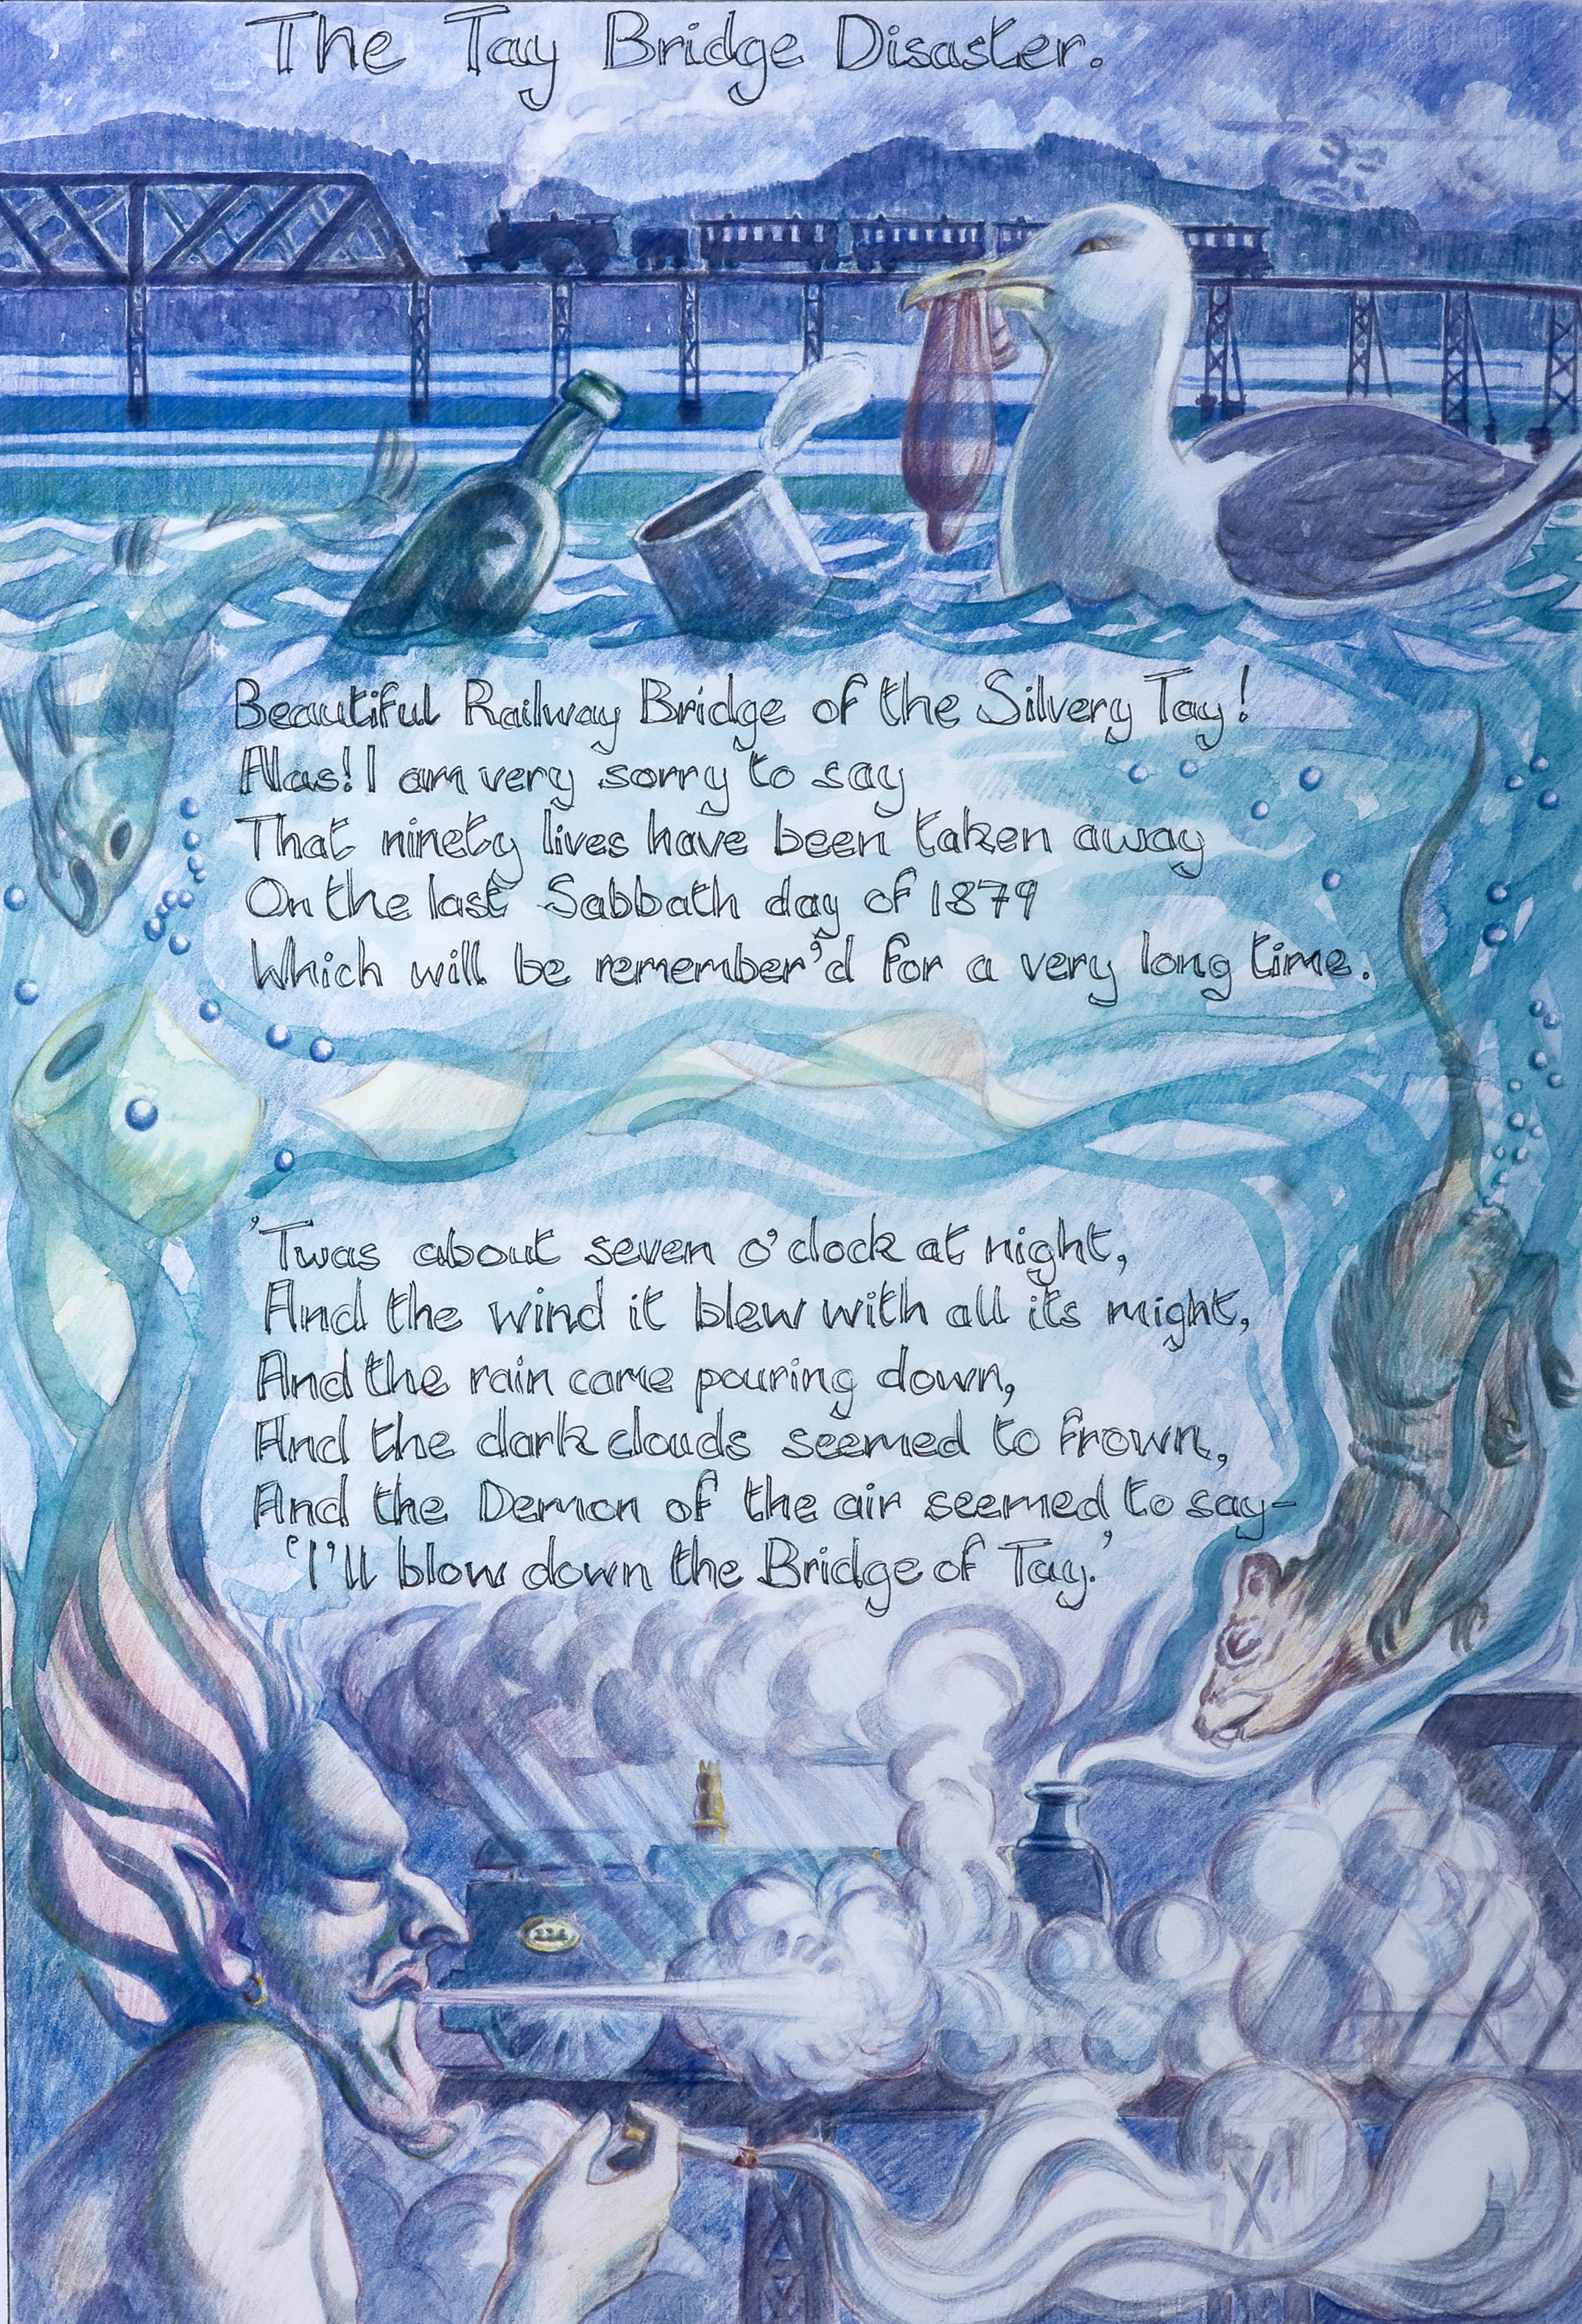 The Tay Bridge Disaster.
Beautiful Railway Bridge of the Silvery Tay!
Alas! I am very sorry to say
That ninety lives have been taken away
On the last Sabbath day of 1879
Which will be remember'd for a very long time.
'Twas about seven o'clock at night,
And the wind it blew with all its might,
And the rain came pouring down,
And the dark clouds seemed to frown,
And the Demon of the air seemed to say-
'I'll blow down the Bridge of Tay.'
224